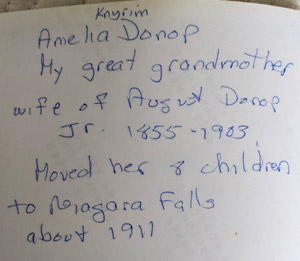 Knyrim
Amelia Donop
My great grandmother
wife of August Donop
Jr. 1855-1903
Moved her 8 children
to Niagara Falls
about 1911